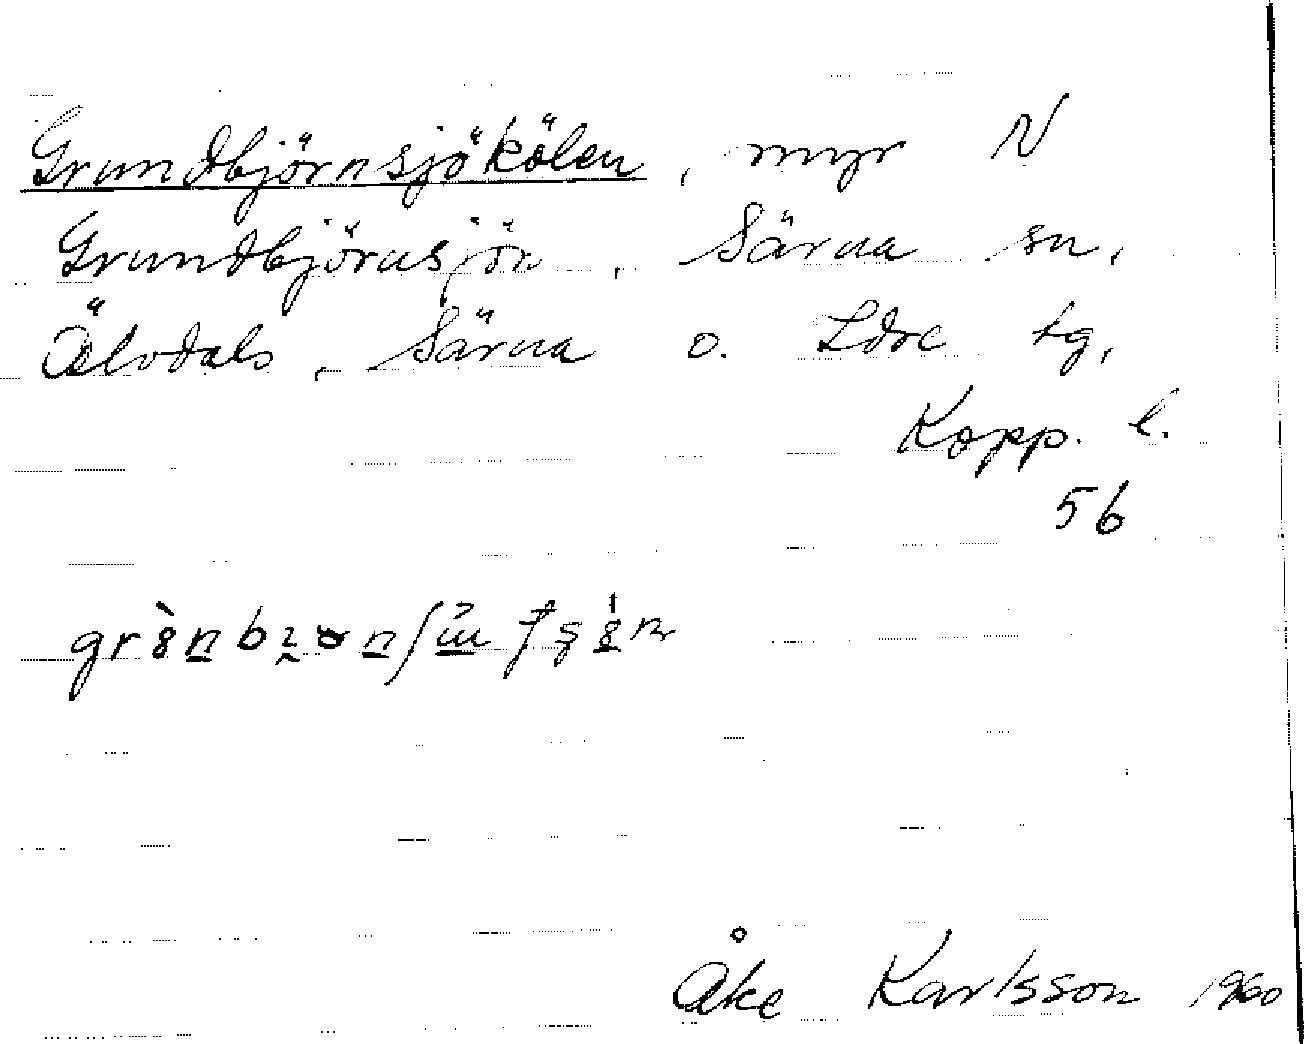 Grundbjörnsjökölen, myr N
Grundbjörnsjön, Särna sn,
Älvdals, Särna o. Idre tg,
Kopp. l.
56
Åke Karlsson 1960